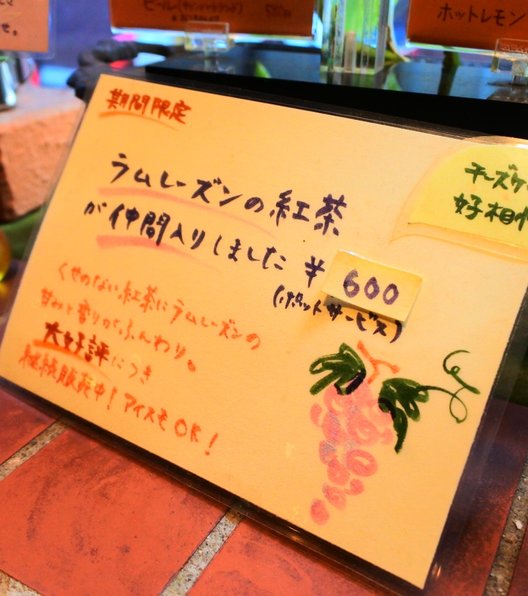 せ。
ホットレモン
期間限定
ラムレーズンの紅茶
が仲間入りしました ¥600
(ポットサービス)
くせのない紅茶にラムレーズンの
甘みと香りで、ふんわり。
大好評につき
継続販売中!アイスもOK!
チーズケ
好相性